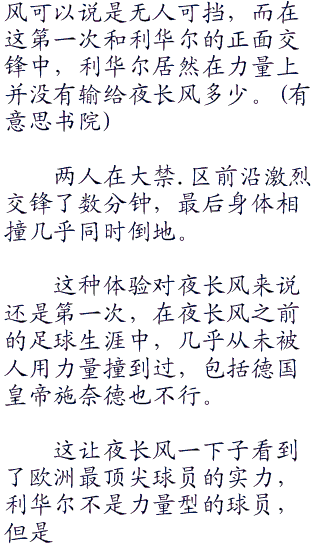 风可以说是无人可挡，而在
这第一次和利华尔的正面交
锋中，利华尔居然在力量上
并没有输给夜长风多少。(有
意思书院)
两人在大禁.区前沿激烈
交锋了数分钟，最后身体相
撞几乎同时倒地。
这种体验对夜长风来说
还是第一次，在夜长风之前
的足球生涯中，几乎从未被
人用力量撞到过，包括德国
皇帝施奈德也不行。
这让夜长风一下子看到
了欧洲最顶尖球员的实力，
利华尔不是力量型的球员，
但是